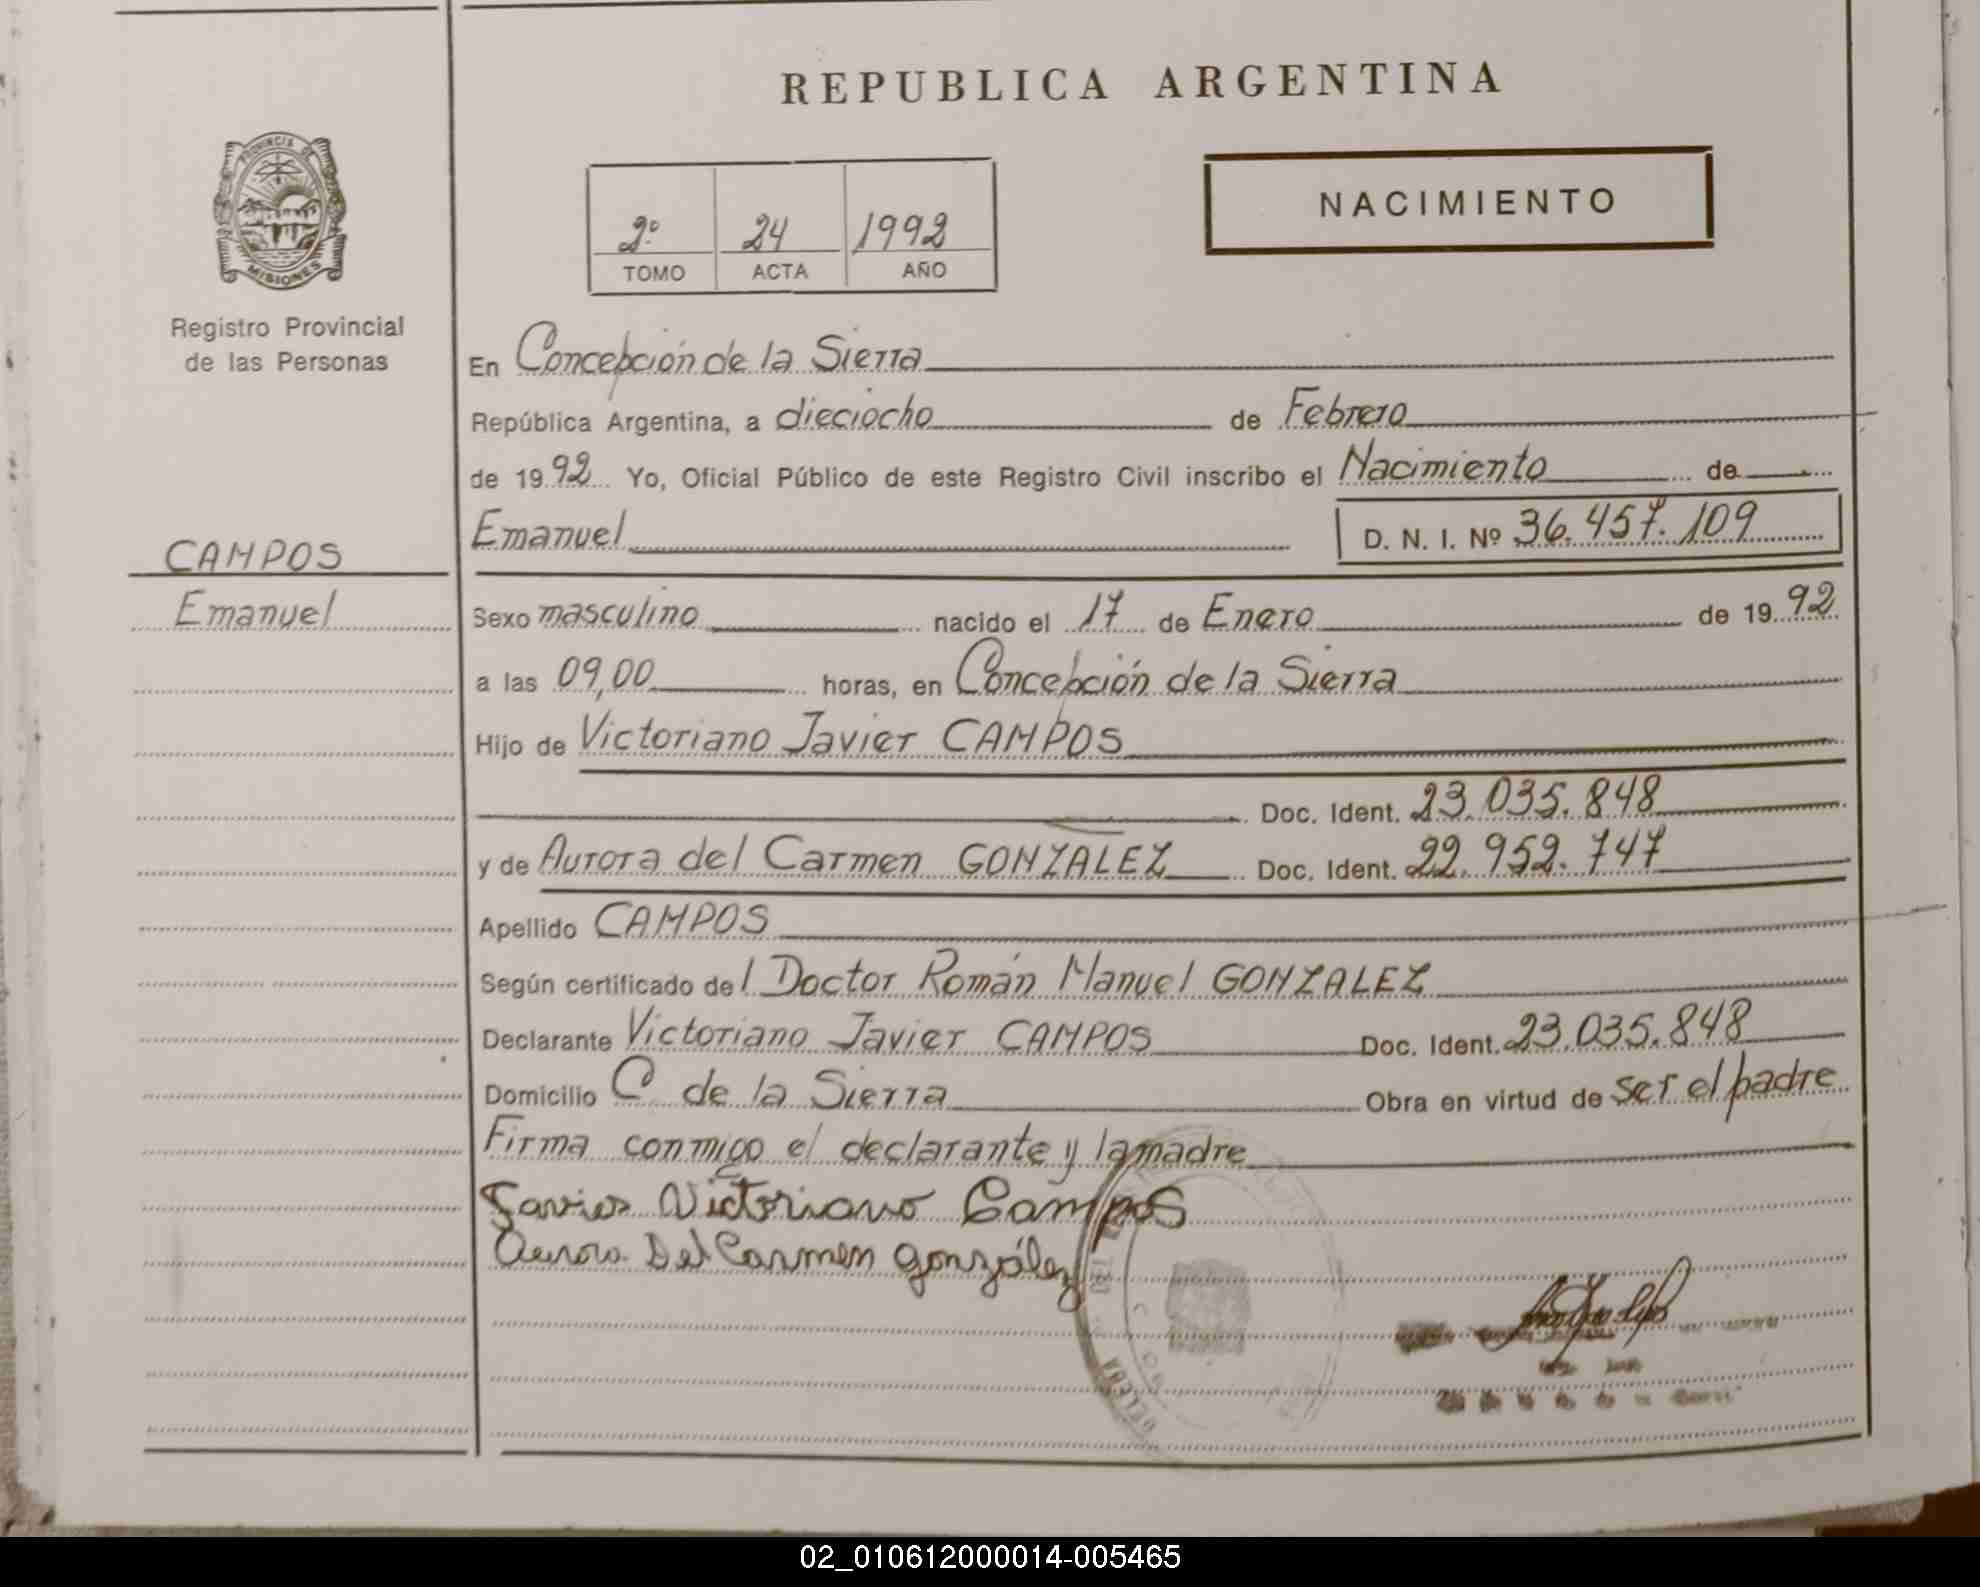 REPUBLICA ARGENTINA
PROVINCIA DE
MISIONES
Registro Provincial
de las Personas
2º 24 1992
TOMO ACTA AÑO
NACIMIENTO
En Concepción de la Sierra
República Argentina, a dieciocho de Febrero
de 1992 Yo, Oficial Público de este Registro Civil inscribo el Nacimiento de
Emanuel D. N. I. Nº 36.457.109
CAMPOS
Emanuel
Sexo masculino nacido el 17 de Enero de 1992
a las 09,00 horas, en Concepción de la Sierra
Hijo de Victoriano Javier CAMPOS
Doc. Ident. 23.035.848
y de Aurora del Carmen GONZALEZ Doc. Ident. 22.952.747
Apellido CAMPOS
Según certificado del Doctor Román Manuel GONZALEZ
Declarante Victoriano Javier CAMPOS Doc. Ident. 23.035.848
Domicilio C de la Sierra Obra en virtud de ser el padre
Firma conmigo el declarante y la madre
Javier Victoriano Campos
Aurora Del Carmen González
02_010612000014-005465